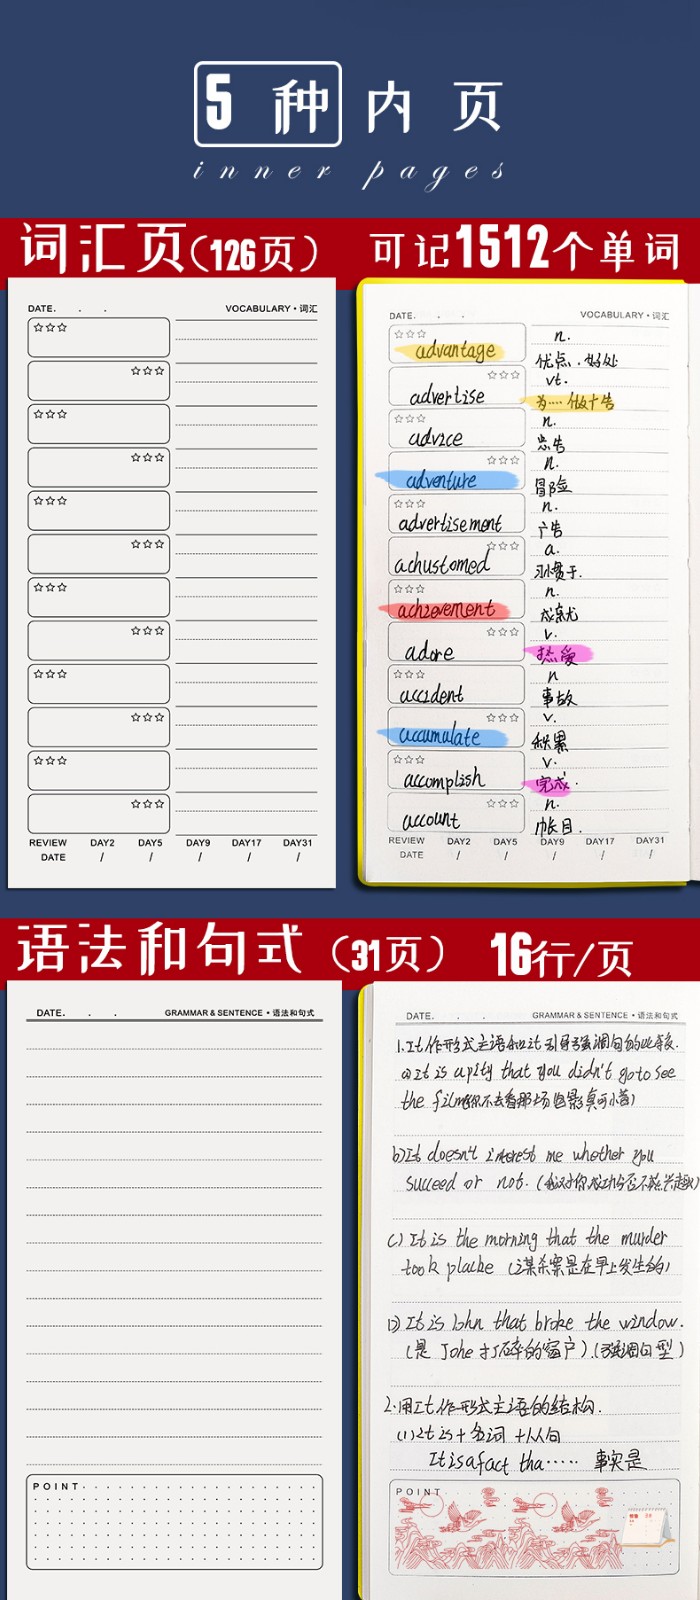 5 种 内 页
inner pages
词汇页(126页) 可记1512个单词
DATE. . . VOCABULARY·词汇
REVIEW DAY2 DAY5 DAY9 DAY17 DAY31
DATE / / / / /
DATE. . . VOCABULARY·词汇
advantage n.
优点.好处
advertise vt.
为……做广告
advice n.
忠告
adventure n.
冒险
advertisement n.
广告
achustomed a.
习惯于.
achievement n.
成就
adore v.
热爱
accident n
事故
accumulate v.
积累
accomplish v.
完成.
account n.
帐目.
REVIEW DAY2 DAY5 DAY9 DAY17 DAY31
DATE / / / / /
语法和句式(31页) 16行/页
DATE. . . GRAMMAR & SENTENCE·语法和句式
POINT
DATE. . . GRAMMAR & SENTENCE·语法和句式
1.It作形式主语和it引导强调句的比较.
a)It is a pity that you didn't go to see
the film(你不去看那场电影真可惜)
b)It doesn't interest me whether you
succeed or not.(我对你成功与否不感兴趣)
c) It is the morning that the murder
took plache (谋杀案是在早上发生的)
D) It is John that broke the window.
(是 Johe 打碎的窗户).(强调句型)
2.用It作形式主语的结构.
(1)It is+名词+从句
It is a fact tha…… 事实是
POINT